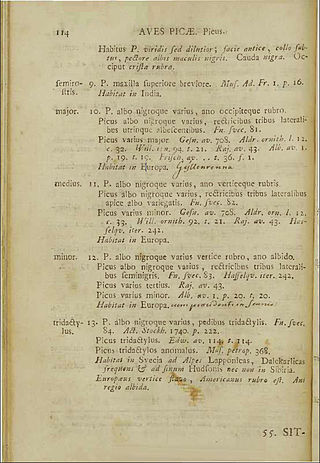 114 AVES PICÆ. Picus.
Habitus P. viridis sed dilutior; facie antice, collo sub-
tus, pectore albis maculis nigris. Cauda nigra. Oc-
ciput crista rubra.
semiro- 9. P. maxilla superiore breviore. Mus. Ad. Fr. 1. p. 16.
stris. Habitat in India.
major. 10. P. albo nigroque varius, ano occipiteque rubro.
Picus albo nigroque varius, rectricibus tribus laterali-
bus utrinque albescentibus. Fn. svec. 81.
Picus varius major. Gesn. av. 708. Aldr. ornith. l. 12.
c. 32. Will. orn. 94. t. 21. Raj. av. 43. Alb. av. 1.
p. 19. t. 19. Frisch. av. . . t. 36. f. 1.
Habitat in Europa.
medius. 11. P. albo nigroque varius, ano verticeque rubris.
Picus albo nigroque varius, rectricibus tribus lateralibus
apice albo variegatis. Fn. svec. 82.
Picus varius minor. Gesn. av. 708. Aldr. orn. l. 12.
c. 33. Will. ornith. 92. t. 21. Raj. av. 43. Has-
selqv. iter. 242.
Habitat in Europa.
minor. 12. P. albo nigroque varius vertice rubro, ano albido.
Picus albo nigroque varius, rectricibus tribus laterali-
bus seminigris. Fn. svec. 83. Hasselqv. iter. 242.
Picus varius tertius. Raj. av. 43.
Picus varius minor. Alb. av. 1. p. 20. t. 20.
Habitat in Europa.
tridacty- 13. P. albo nigroque varius, pedibus tridactylis. Fn. svec.
lus. 84. Act. Stockh. 1740. p. 222.
Picus tridactylus. Edw. av. 114. t. 114.
Picus tridactylos anomalus. Mus. petrop. 368.
Habitat in Svecia ad Alpes Lapponicas, Dalekarlicas
frequens & ad sinum Hudsonis nec non in Sibiria.
Europæus vertice flavo, Americanus rubro est. Ani
regio albida.
55. SIT-